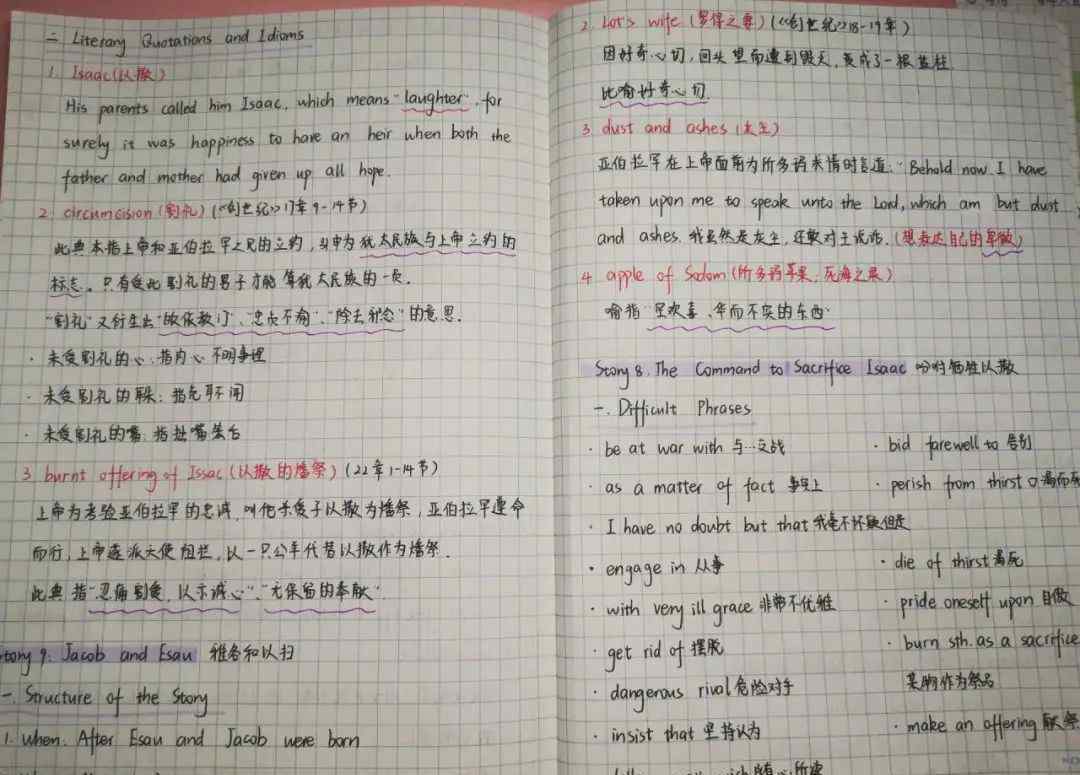 二 Literary Quotations and Idioms
1. Isaac(以撒)
His parents called him Isaac, which means "laughter", for
surely it was happiness to have an heir when both the
father and mother had given up all hope.
2. circumcision (割礼) (《创世纪》17章9-14节)
此典本指上帝和亚伯拉罕之间的立约,身中为犹太民族与上帝立约的
标志。只有受此割礼的男子才能算犹太民族的一员.
"割礼"又衍生出"皈依教门"、"忠贞不渝"、"除去邪念"的意思.
· 未受割礼的心:指内心不明事理
· 未受割礼的耳朵:指充耳不闻
· 未受割礼的嘴:指拙嘴笨舌
3. burnt offering of Issac (以撒的燔祭) (22章1-14节)
上帝为考验亚伯拉罕的忠诚,叫他杀爱子以撒为燔祭,亚伯拉罕遵命
而行,上帝遂派天使阻拦,以一只公羊代替以撒作为燔祭.
此典指"忍痛割爱,以示诚心"、"无保留的奉献".
tory 9. Jacob and Esau 雅各和以扫
一. Structure of the Story
1. When. After Esau and Jacob were born
2. Lot's wife (罗得之妻) (《创世纪》18-19章)
因好奇心切,回头望而遭到毁灭,变成了一根盐柱.
比喻好奇心切.
3. dust and ashes (灰尘)
亚伯拉罕在上帝面前为所多玛求情时言道:"Behold now, I have
taken upon me to speak unto the Lord, which am but dust
and ashes. 我虽然是灰尘,还敢对主说话. (想表达自己的卑微)
4. apple of Sodom (所多玛苹果;死海之果)
喻指"空欢喜、华而不实的东西"
Story 8. The Command to Sacrifice Isaac 吩咐牺牲以撒
一. Difficult Phrases
· be at war with 与…交战
· bid farewell to 告别
· as a matter of fact 事实上
· perish from thirst 口渴而死
· I have no doubt but that 我毫不怀疑但是
· engage in 从事
· die of thirst 渴死
· with very ill grace 非常不优雅
· pride oneself upon 自傲
· get rid of 摆脱
· burn sth. as a sacrifice
某物作为祭品
· dangerous rival 危险对手
· insist that 坚持认为
· make an offering 献祭